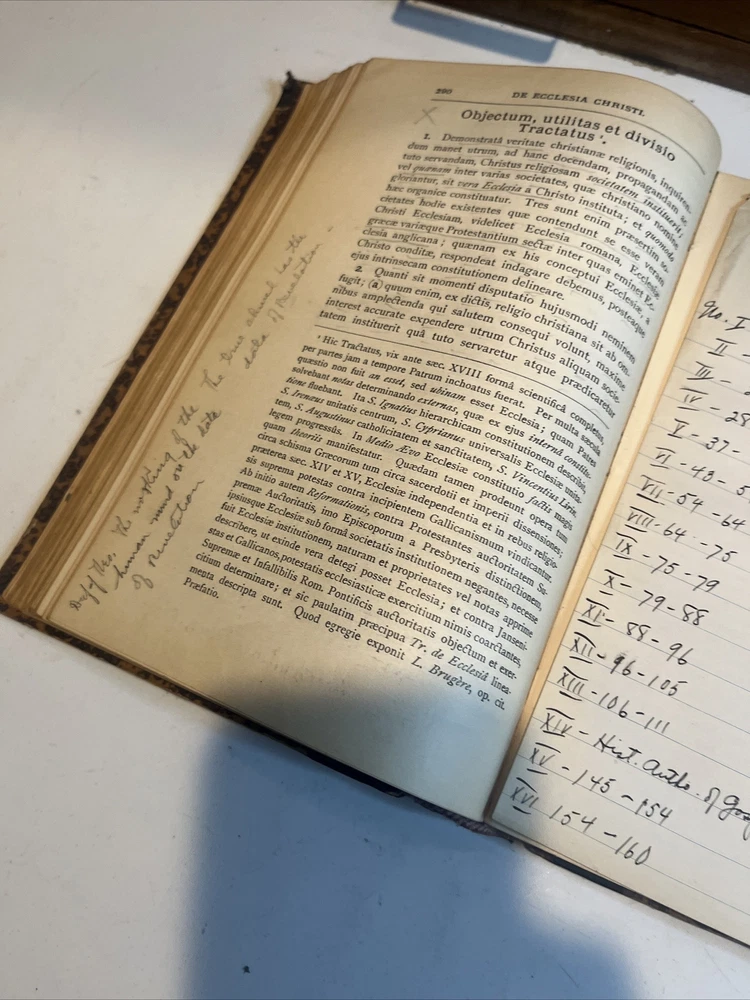 290 DE ECCLESIA CHRISTI.
Objectum, utilitas et divisio
Tractatus¹.
1. Demonstratâ veritate christianæ religionis, inquiren-
dum manet utrum, ad hanc docendam, propagandam et
tuto servandam, Christus religiosam societatem instituerit;
vel quænam inter varias societates, quæ christiano nomine
gloriantur, sit vera Ecclesia a Christo instituta; et quomodo
hæc organice constituatur. Tres sunt enim præsertim so-
cietates hodie existentes quæ contendunt se esse veram
Christi Ecclesiam, videlicet Ecclesia romana, Ecclesiæ
græcæ variæque Protestantium sectæ inter quas eminet Ec-
clesia anglicana; quænam ex his conceptui Ecclesiæ, a
Christo conditæ, respondeat indagare debemus, posteaque
ejus intrinsecam constitutionem delineare.
2. Quanti sit momenti disputatio hujusmodi neminem
fugit; (a) quum enim, ex dictis, religio christiana sit ab om-
nibus amplectenda qui salutem consequi volunt, maxime
interest accurate expendere utrum Christus aliquam socie-
tatem instituerit quâ tuto servaretur atque prædicaretur
¹ Hic Tractatus, vix ante sæc. XVIII formâ scientificâ completus,
per partes jam a tempore Patrum inchoatus fuerat. Per multa sæcula
quæstio non fuit an esset, sed ubinam esset Ecclesia; quam Patres
solvebant notas determinando externas, quæ ex ejus internâ constitu-
tione fluebant. Ita S. Ignatius hierarchicam constitutionem describit,
S. Ireneus unitatis centrum, S. Cyprianus universalis Ecclesiæ unita-
tem, S. Augustinus catholicitatem et sanctitatem, S. Vincentius Lirin.
legem progressûs. In Medio Ævo Ecclesiæ constitutio factis magis
quam theoriis manifestatur. Quædam tamen prodeunt opera tum
circa schisma Græcorum tum circa sacerdotii et imperii dissensiones;
præterea sæc. XIV et XV, Ecclesiæ independentia et in rebus religio-
sis suprema potestas contra incipientem Gallicanismum vindicantur.
Ab initio autem Reformationis, contra Protestantes auctoritatem Su-
premæ Auctoritatis, imo Episcoporum a Presbyteris distinctionem,
ipsiusque Ecclesiæ sub formâ societatis institutionem negantes, necesse
fuit Ecclesiæ institutionem, naturam et proprietates vel notas apprime
describere, ut exinde vera detegi posset Ecclesia; et contra Janseni-
stas et Gallicanos, potestatis ecclesiasticæ exercitium nimis coarctantes,
Supremæ et Infallibilis Rom. Pontificis auctoritatis objectum et exer-
citium determinare; et sic paulatim præcipua Tr. de Ecclesiâ linea-
menta descripta sunt. Quod egregie exponit L. Brugère, op. cit.
Præfatio.
The true church has the
data of Revelation -
Def of Theo. The working of the
human mind on the data
of revelation
II -
III -
IV - 28
V - 37 -
VI - 48 - 5
VII - 54 - 64
VIII - 64 - 75
IX - 75 - 79
X - 79 - 88
XI - 88 - 96
XII - 96 - 105
XIII - 106 - 111
XIV - Hist. Autho. of
XV - 145 - 154
XVI 154 - 160